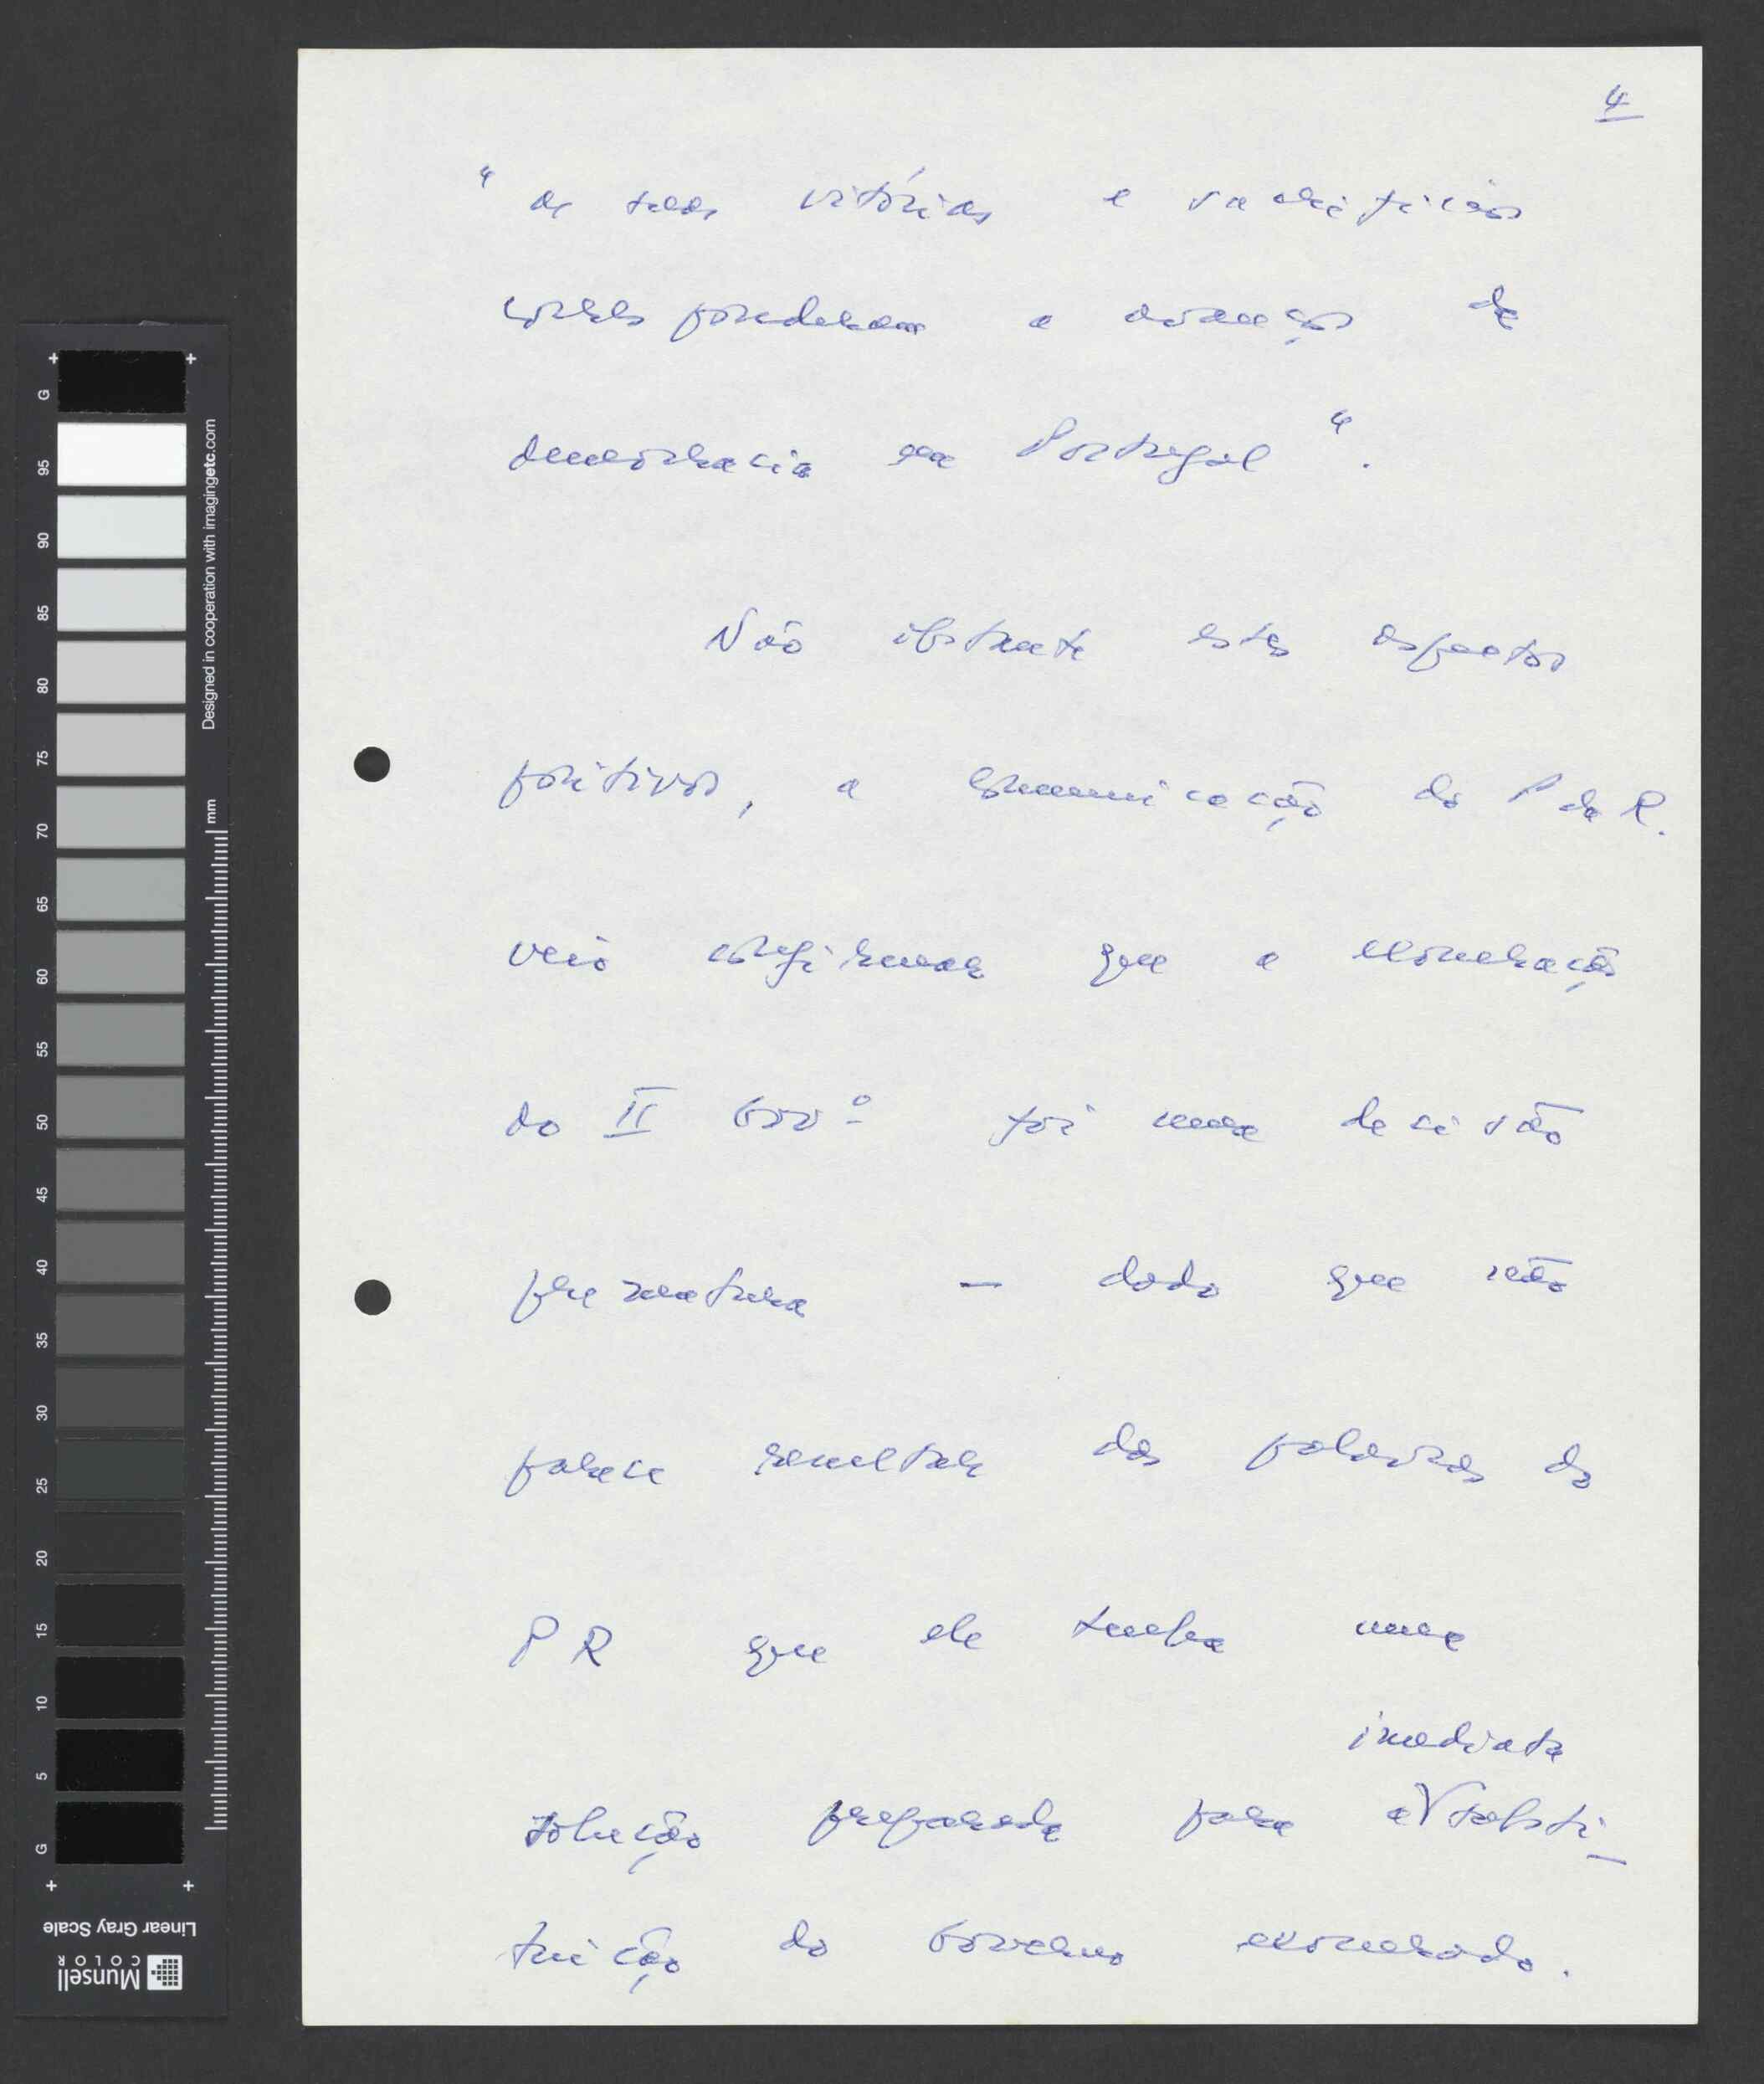 4
"as suas vitórias e sacrifícios
corresponderam a avanços da
democracia em Portugal".
Não obstante estes aspectos
positivos, a comunicação do P da R.
veio confirmar que a exoneração
do II Govº foi uma decisão
prematura — dado que não
parece resultar das palavras do
PR que ele tenha uma
imediata
solução preparada para a substi-
tuição do Governo exonerado.
G
95
90
85
80
75
70
65
60
55
50
45
40
35
30
25
20
15
10
5
G
Designed in cooperation with imagingetc.com
mm
Linear Gray Scale
Munsell
COLOR